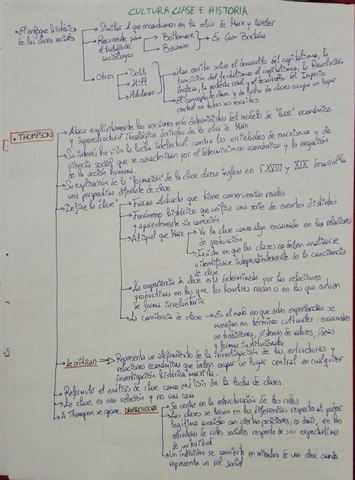 CULTURA, CLASE E HISTORIA
El enfoque histórico de las clases sociales
Similar al que encontramos en la obra de Marx y Weber
Bottomore
Bauman
En Gran Bretaña
Otros
Dobb
Hill
Hobsbawm
Han escrito sobre el desarrollo del capitalismo, la
transición del feudalismo al capitalismo, la Revolución
Inglesa, la
El concepto de clase y de lucha de clases ocupa un lugar
central en todos sus escritos
THOMPSON
Ataca explícitamente las versiones más deterministas del modelo de "base" económica
y superestructura ideológica de la obra de Marx
Su interés ha sido la lucha intelectual contra las variedades de marxismo y de
ciencia social que se caracterizan por el determinismo económico y la negación
de la acción humana.
Su explicación de la "formación" de la clase obrera inglesa en S. XVIII y XIX desarrolla
una perspectiva diferente de clase
Define la clase
Fuerza abstracta que tiene consecuencias reales
Fenómeno histórico que unifica una serie de eventos distintos
y aparentemente sin conexión
Al igual que Marx
Ve la clase como algo encarnado en las relaciones
de producción
Insiste en que las clases no deben analizarse
o identificarse independientemente de la conciencia
de clase
La experiencia de clase está determinada por las relaciones
productivas en las que los hombres nacen o en las que entran
de forma involuntaria
La conciencia de clase
Es el modo en que estas experiencias se
manejan en términos culturales: encarnadas
en tradiciones, sistemas de valores, ideas
y formas institucionales.
Le critican
Representa un alejamiento de la investigación de las estructuras y
relaciones económicas que deben ocupar un lugar central en cualquier
investigación histórica marxista
Reformula el análisis de clase como análisis de la lucha de clases.
La clase es una relación y no una cosa
A Thompson se opone DAHRENDORF
Se centra en la estructuración de los roles
Las clases se basan en las diferencias respecto al poder
legítimo asociado con ciertas posiciones, es decir, en las
estructuras de roles sociales respecto de sus expectativas
de autoridad
Un individuo se convierte en miembro de una clase cuando
representa un rol social